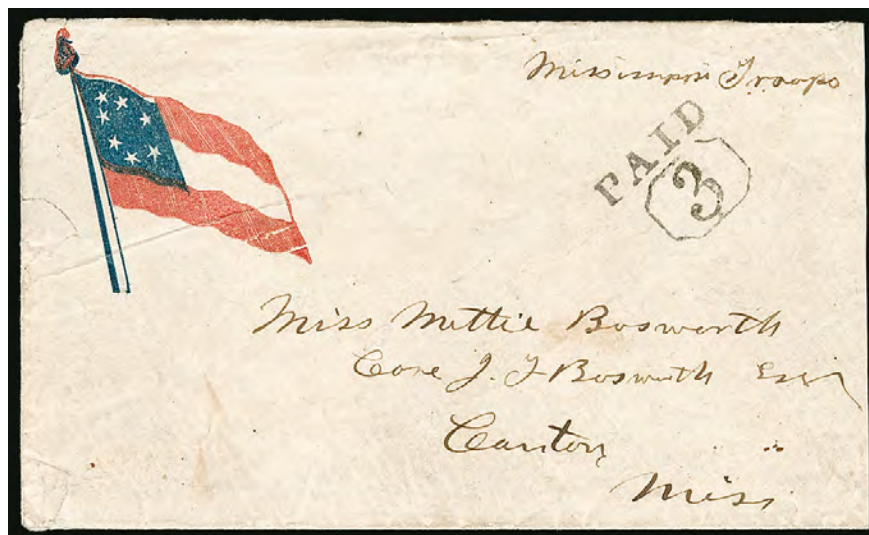 Mississippi Troops
PAID
3
Miss Mettie Bosworth
Care J. F Bosworth Esqr
Canton
Miss